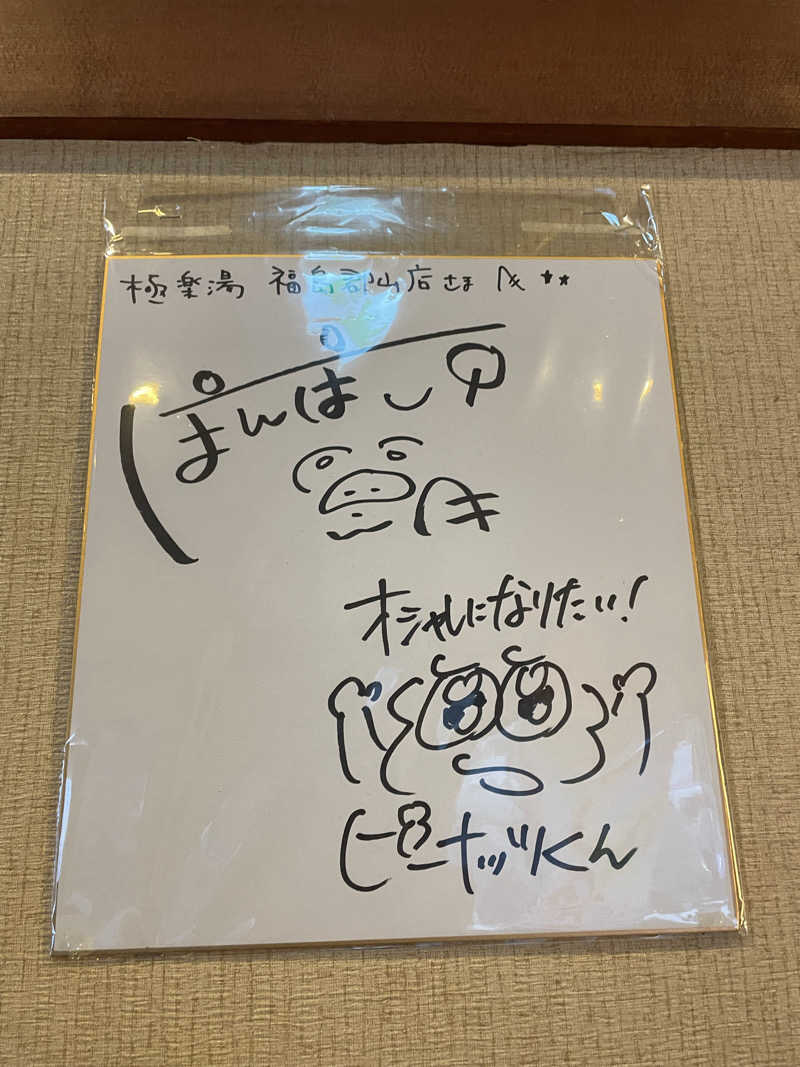 極楽湯 福島郡山店さま へ **
ぽんぽこ
オシャレになりたい!
ピーナッツくん